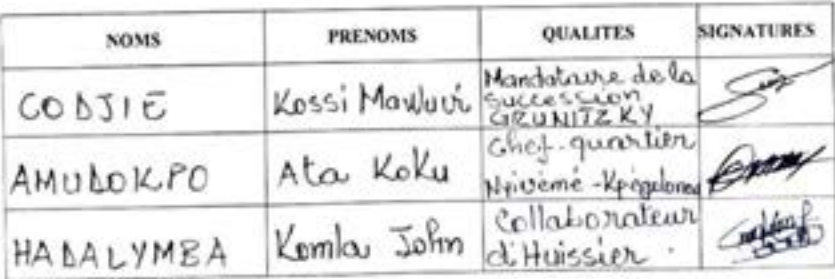 NOMS PRENOMS QUALITES SIGNATURES
CODJIE Kossi Mawuvi Mandataire de la
succession
GRUNITZKY
AMUDOKPO Ata Koku Chef-quartier
HADALYMBA Komla John Collaborateur
d'Huissier.